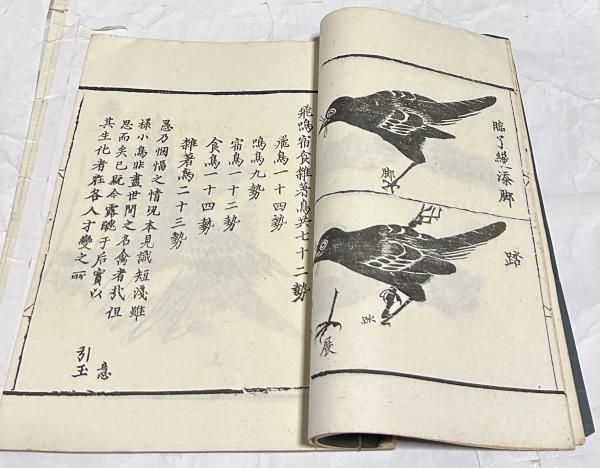 臨了纔添脚
脚
踏
展
飛鳴宿食雜著鳥共七十二勢
飛鳥一十四勢
鳴鳥九勢
宿鳥一十二勢
食鳥一十四勢
雜著鳥二十三勢
愚乃悃愊之情况本見識短淺雖
禄小鳥非盡世間之名禽者哉但
思而矣已既今露醜于后實以
其生化者在各人才變之所
引玉
意